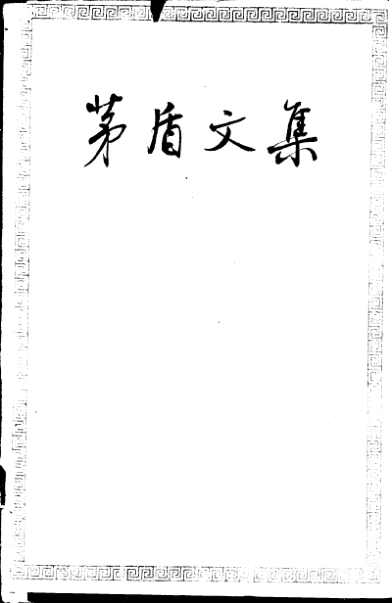 茅盾文集